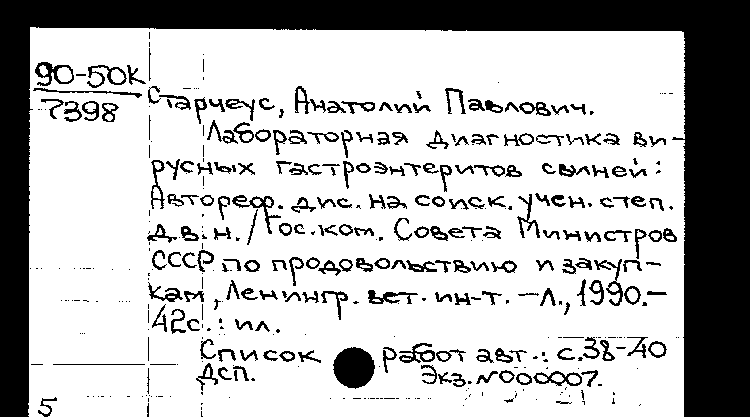 90-50к
7398
Старчеус, Анатолий Павлович.
Лабораторная диагностика ви-
русных гастроэнтеритов свиней:
Автореф. дис. на соиск. учен. степ.
д.в.н. /Гос. ком. Совета Министров
СССР по продовольствию и закуп-
кам, Ленингр. вет. ин-т. – Л., 1990.–
42с.: ил.
Список работ авт.: с.38-40
ДСП. Экз. N000007.
5